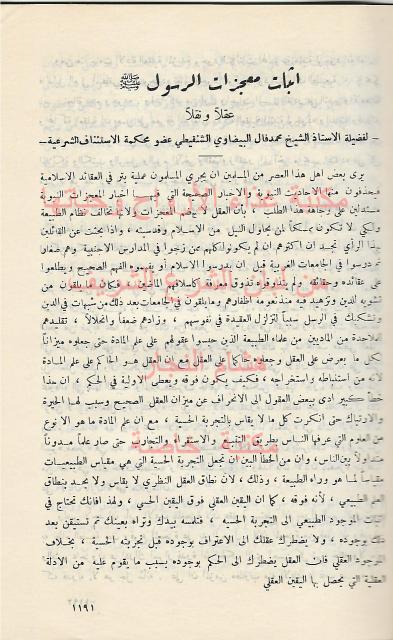 اثبات معجزات الرسول ﷺ
عقلاً ونقلاً
لفضيلة الاستاذ الشيخ محمد فال البيضاوي الشنقيطي عضو محكمة الاستئناف الشرعية
يرى بعض اهل هذا العصر من المسلمين ان يجري المسلمون عملية بتر في العقائد الاسلامية
فيحذفون منها الاحاديث النبوية والاخبار الصحيحة التي اخبار المعجزات النبوية
مستدلين على وجاهة هذا الطلب ، بأن العقل لا يهضم المعجزات ولأنها تخالف نظام الطبيعة
ولكي لا تكون ممسكاً لمن يحاول النيل من الإسلام وقدسيته ، واذا بحثت عن القائلين
بهذا الرأي تجد ان اكثرهم ان لم يكونوا كلهم ممن زجوا في المدارس الاجنبية وهم صغار
ثم درسوا في الجامعات الغربية قبل ان يدرسوا الاسلام او يفهموه الفهم الصحيح ويطلعوا
على عقائده وحقائقه ولم يتذوقوه تذوق معرفة كاسلافهم الماضين ، فكان ما يتلقون من
تشويه للدين وتزهيد فيه منذ نعومة أظفارهم وما يلقون في الجامعات بعد ذلك من شبهات في الدين
وتشكيك في الرسل سبباً لتزلزل العقيدة في نفوسهم ، وزادهم ضعفاً وانحلالاً ، تقليدهم
للملاحدة من الماديين من علماء الطبيعة الذين حبسوا عقولهم على علم المادة حتى جعلوه ميزاناً
لكل ما يعرض على العقل وجعلوه حاكماً على العقل مع ان العقل هو الحاكم على علم المادة
لأنه من استنباطه واستخراجه ، فكيف يكون فوقه ويعطى الاولية في الحكم ، ان هذا
خطأ كبير ادى ببعض العقول الى الانحراف عن ميزان العقل الصحيح وسبب لها الحيرة
والارتباك حتى انكرت كل ما لا يقاس بالتجربة الحسية ، مع ان علم المادة ما هو الا نوع
من العلوم التي عرفها الناس بطريق التتبع والاستقراء والتجارب حتى صار علماً مدوناً
متداولاً بين الناس ، وان من الخطأ البين ان تجعل التجربة الحسية التي هي مقياس الطبيعيات
مقياساً لما هو وراء الطبيعة ، وذلك ، لان نطاق العقل النظري لا يقاس ولا يحد بنطاق
العلم الطبيعي ، لأنه فوقه ، كما ان اليقين العقلي فوق اليقين الحسي ، ولهذا فانك تحتاج في
اثبات الموجود الطبيعي الى التجربة الحسية ، فتلمسه بيدك وتراه بعينك ثم تستيقن بعد
ذلك وجوده ، ولا يضطرك عقلك الى الاعتراف بوجوده قبل تجربته الحسية ، بخلاف
الموجود العقلي فان العقل يضطرك الى الحكم بوجوده بسبب ما يقوم عليه من الادلة
العقلية التي يحصل بها اليقين العقلي
١١٩١
مكتبة غذاء الأرواح وحياتها
هشام النجار
مكتبة خاصة